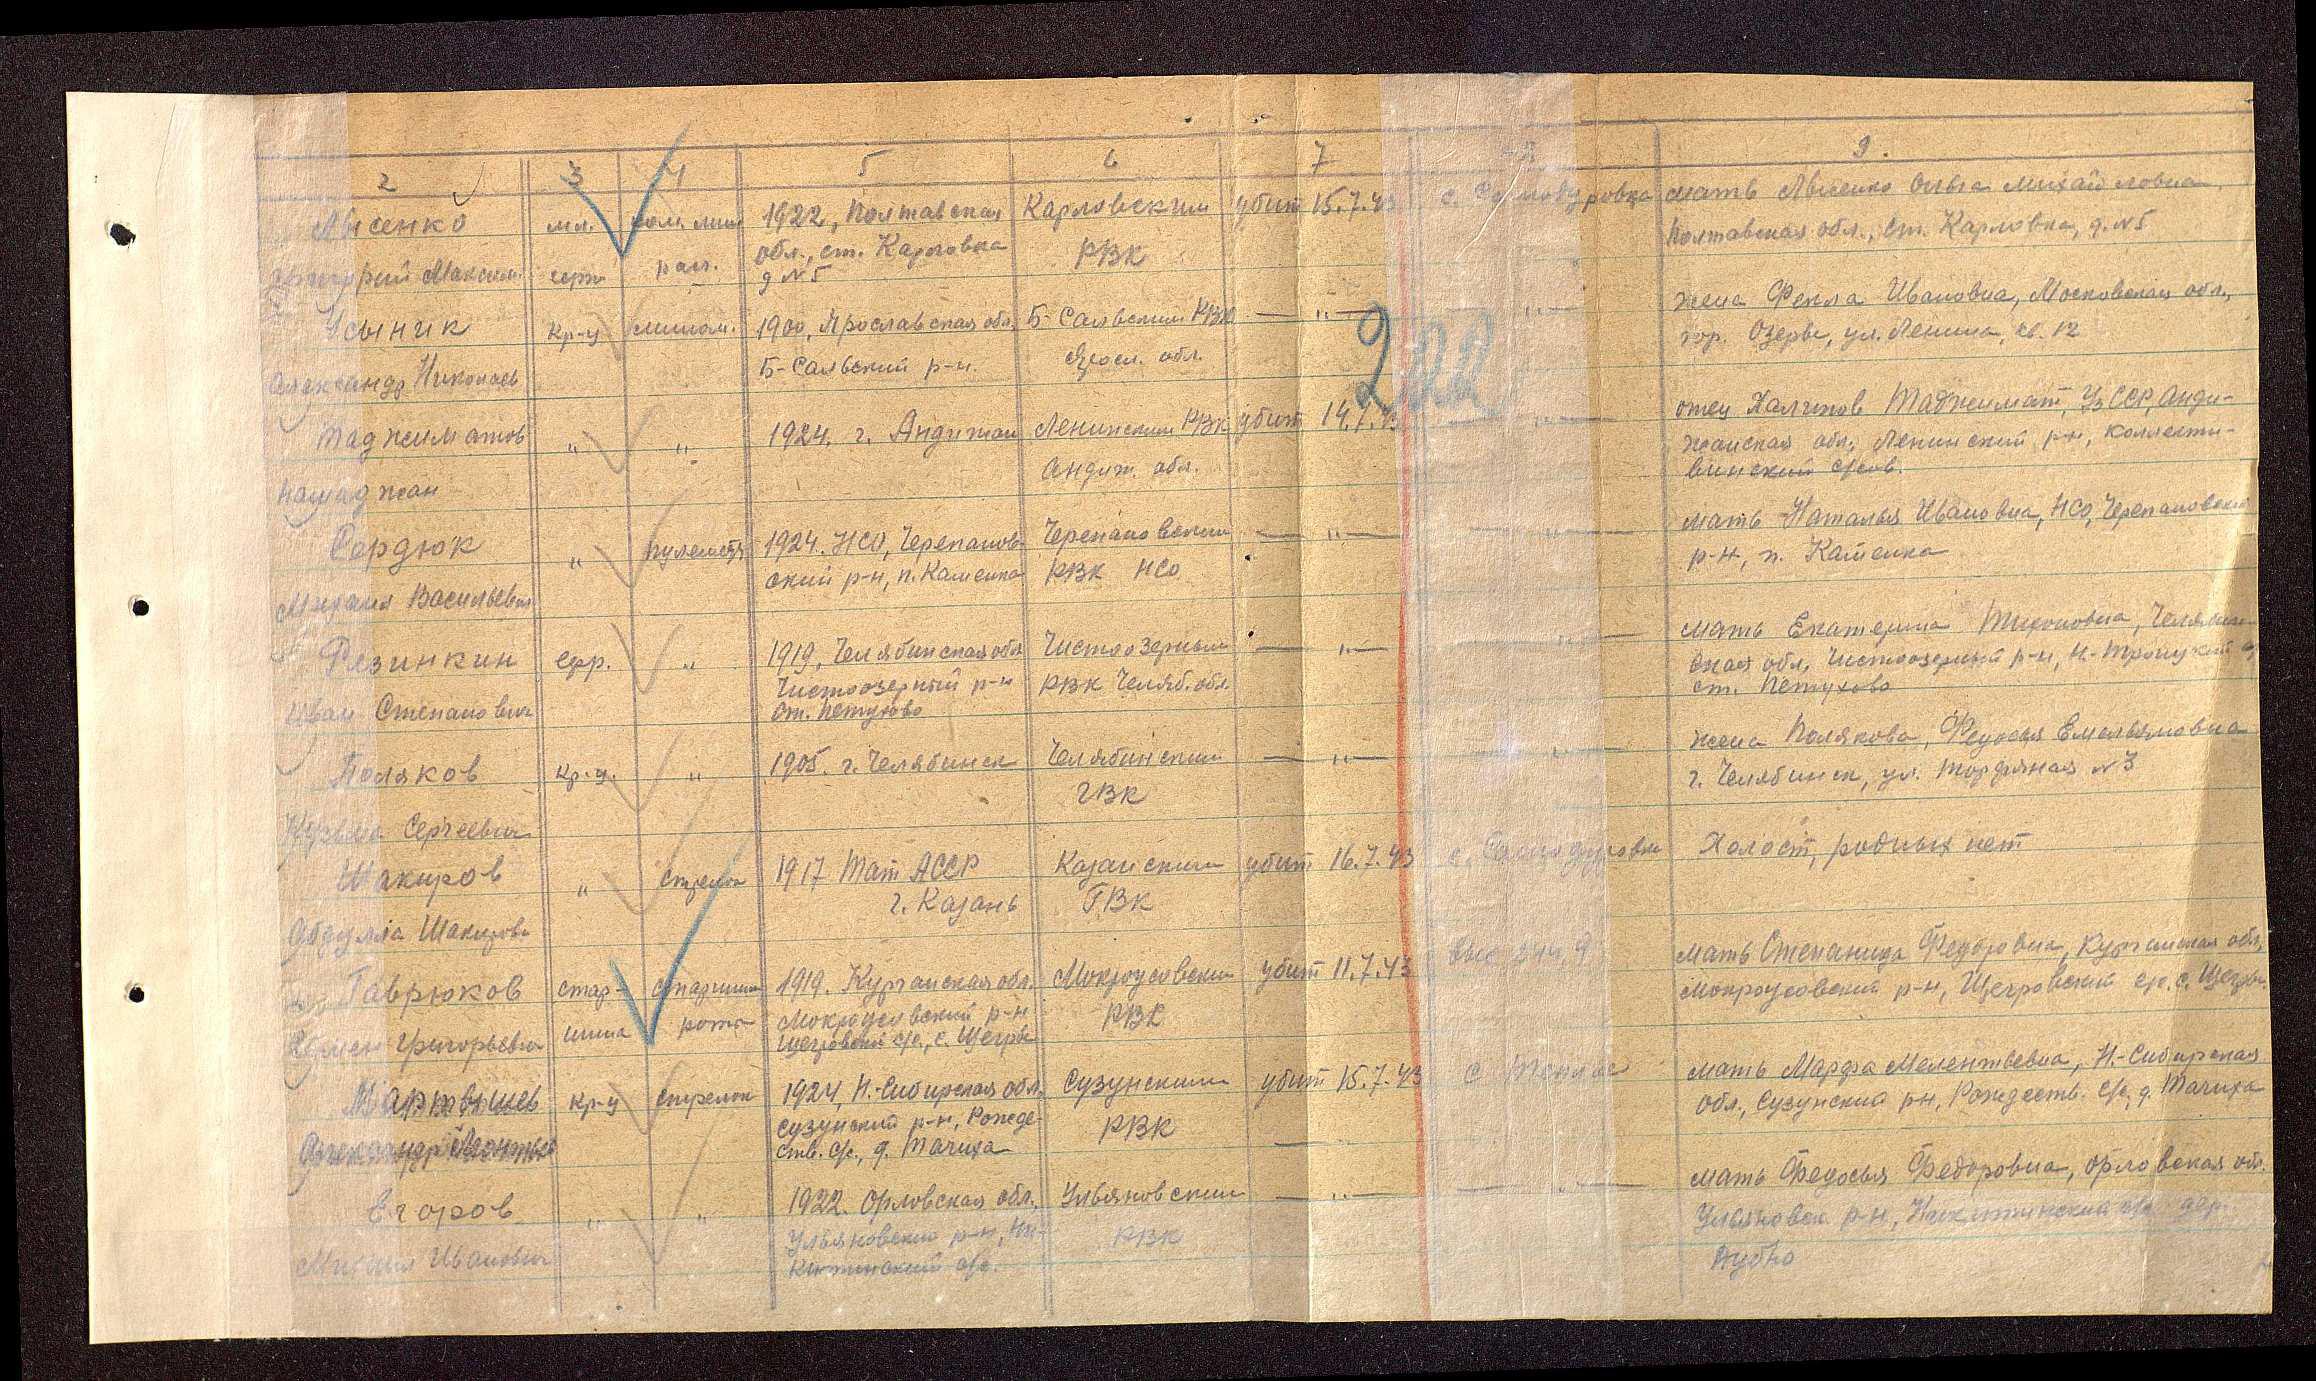 2 3 4 5 6 7 9.
Лысенко мл. ком. мин 1922, Полтавская Карловским убит 15.7.43 мать Лысенко Ольга Михайловна,
Григорий Максим. серж. рас. обл., ст. Карловка РВК Полтавская обл., ст. Карловка, д. №5
д №5
Усыник кр-ц мином. 1900, Ярославская обл. Б-Сальским РВК — " — — " — жена Фекла Ивановна, Московская обл.,
Александр Николаев Б-Сальский р-н. Яросл. обл. гор. Озеры, ул. Ленина, кв. 12
222
Таджиматов " " 1924. г. Андижан Ленинским РВК убит 14.7.43 — " — отец Халчинов Таджимат, УзССР, Анди-
Андиж. обл. жанская обл., Ленинский р-н, Коллекти-
винский с/сов.
Сердюк " пулеметч 1924. НСО, Черепанов- Черепановским — " — — " — мать Наталья Ивановна, НСО, Черепановский
Михаил Васильевич ский р-н, п. Каменка РВК НСО р-н, п. Каменка
Резинкин ефр. " 1919. Челябинская обл Чистоозерным — " — — " — мать Екатерина Тихоновна, Челябин-
Иван Степанович Чистоозерный р-н РВК Челяб. обл. ская обл, Чистоозерный р-н, Н-Троицкий с/
ст. Петухово ст. Петухово
Поляков кр-ц. " 1905. г. Челябинск Челябинским — " — — " — жена Полякова, Федосья Емельяновна
Кузьма Сергеевич ГВК г. Челябинск, ул. Торфяная №3
Шакиров " стрелок 1917 Тат АССР Казанским убит 16.7.43 с. Самодуровка Холост, родных нет
Абдулла Шакирович г. Казань ГВК
Гаврюков стар- старшина 1919. Курганская обл. Мокроусовским убит 11.7.43 выс 244,9 мать Степанида Федоровна, Курганская обл,
Григорьевич шина рота Мокроусовский р-н РВК Мокроусовский р-н, Щегровский с/с. с. Щегры.
Щегровский с/с., с. Щегры
Мартышев кр-ц стрелок 1924, Н-Сибирская обл. Сузунским убит 15.7.43 с Теплое мать Марфа Мелентьевна, Н-Сибирская
Александр Сузунский р-н, Рожде- РВК обл., Сузунский р-н, Рождеств. с/с, д. Тачиха
ств. с/с., д. Тачиха
Егоров " " 1922. Орловская обл. Ульяновским — " — — " — мать Федосья Федоровна, Орловская обл.
Михаил Иванович Ульяновский р-н, Ни- РВК Ульяновск р-н, Никитинский с/с дер.
китинский с/с. Дубно